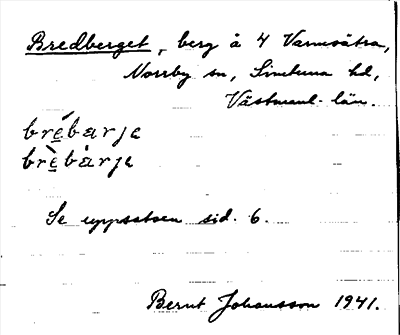 Bredberget, berg å 4 Varmsätra,
Norrby sn, Simtuna hd,
Västmanl. län.
bre̲´barja
brè̲bàrja
Se uppsatsen sid. 6.
Bernt Johansson 1941.